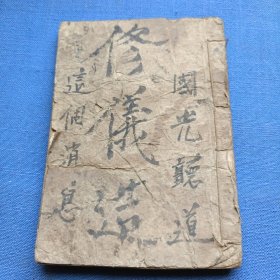 國光聽道
修儀造
這個消息